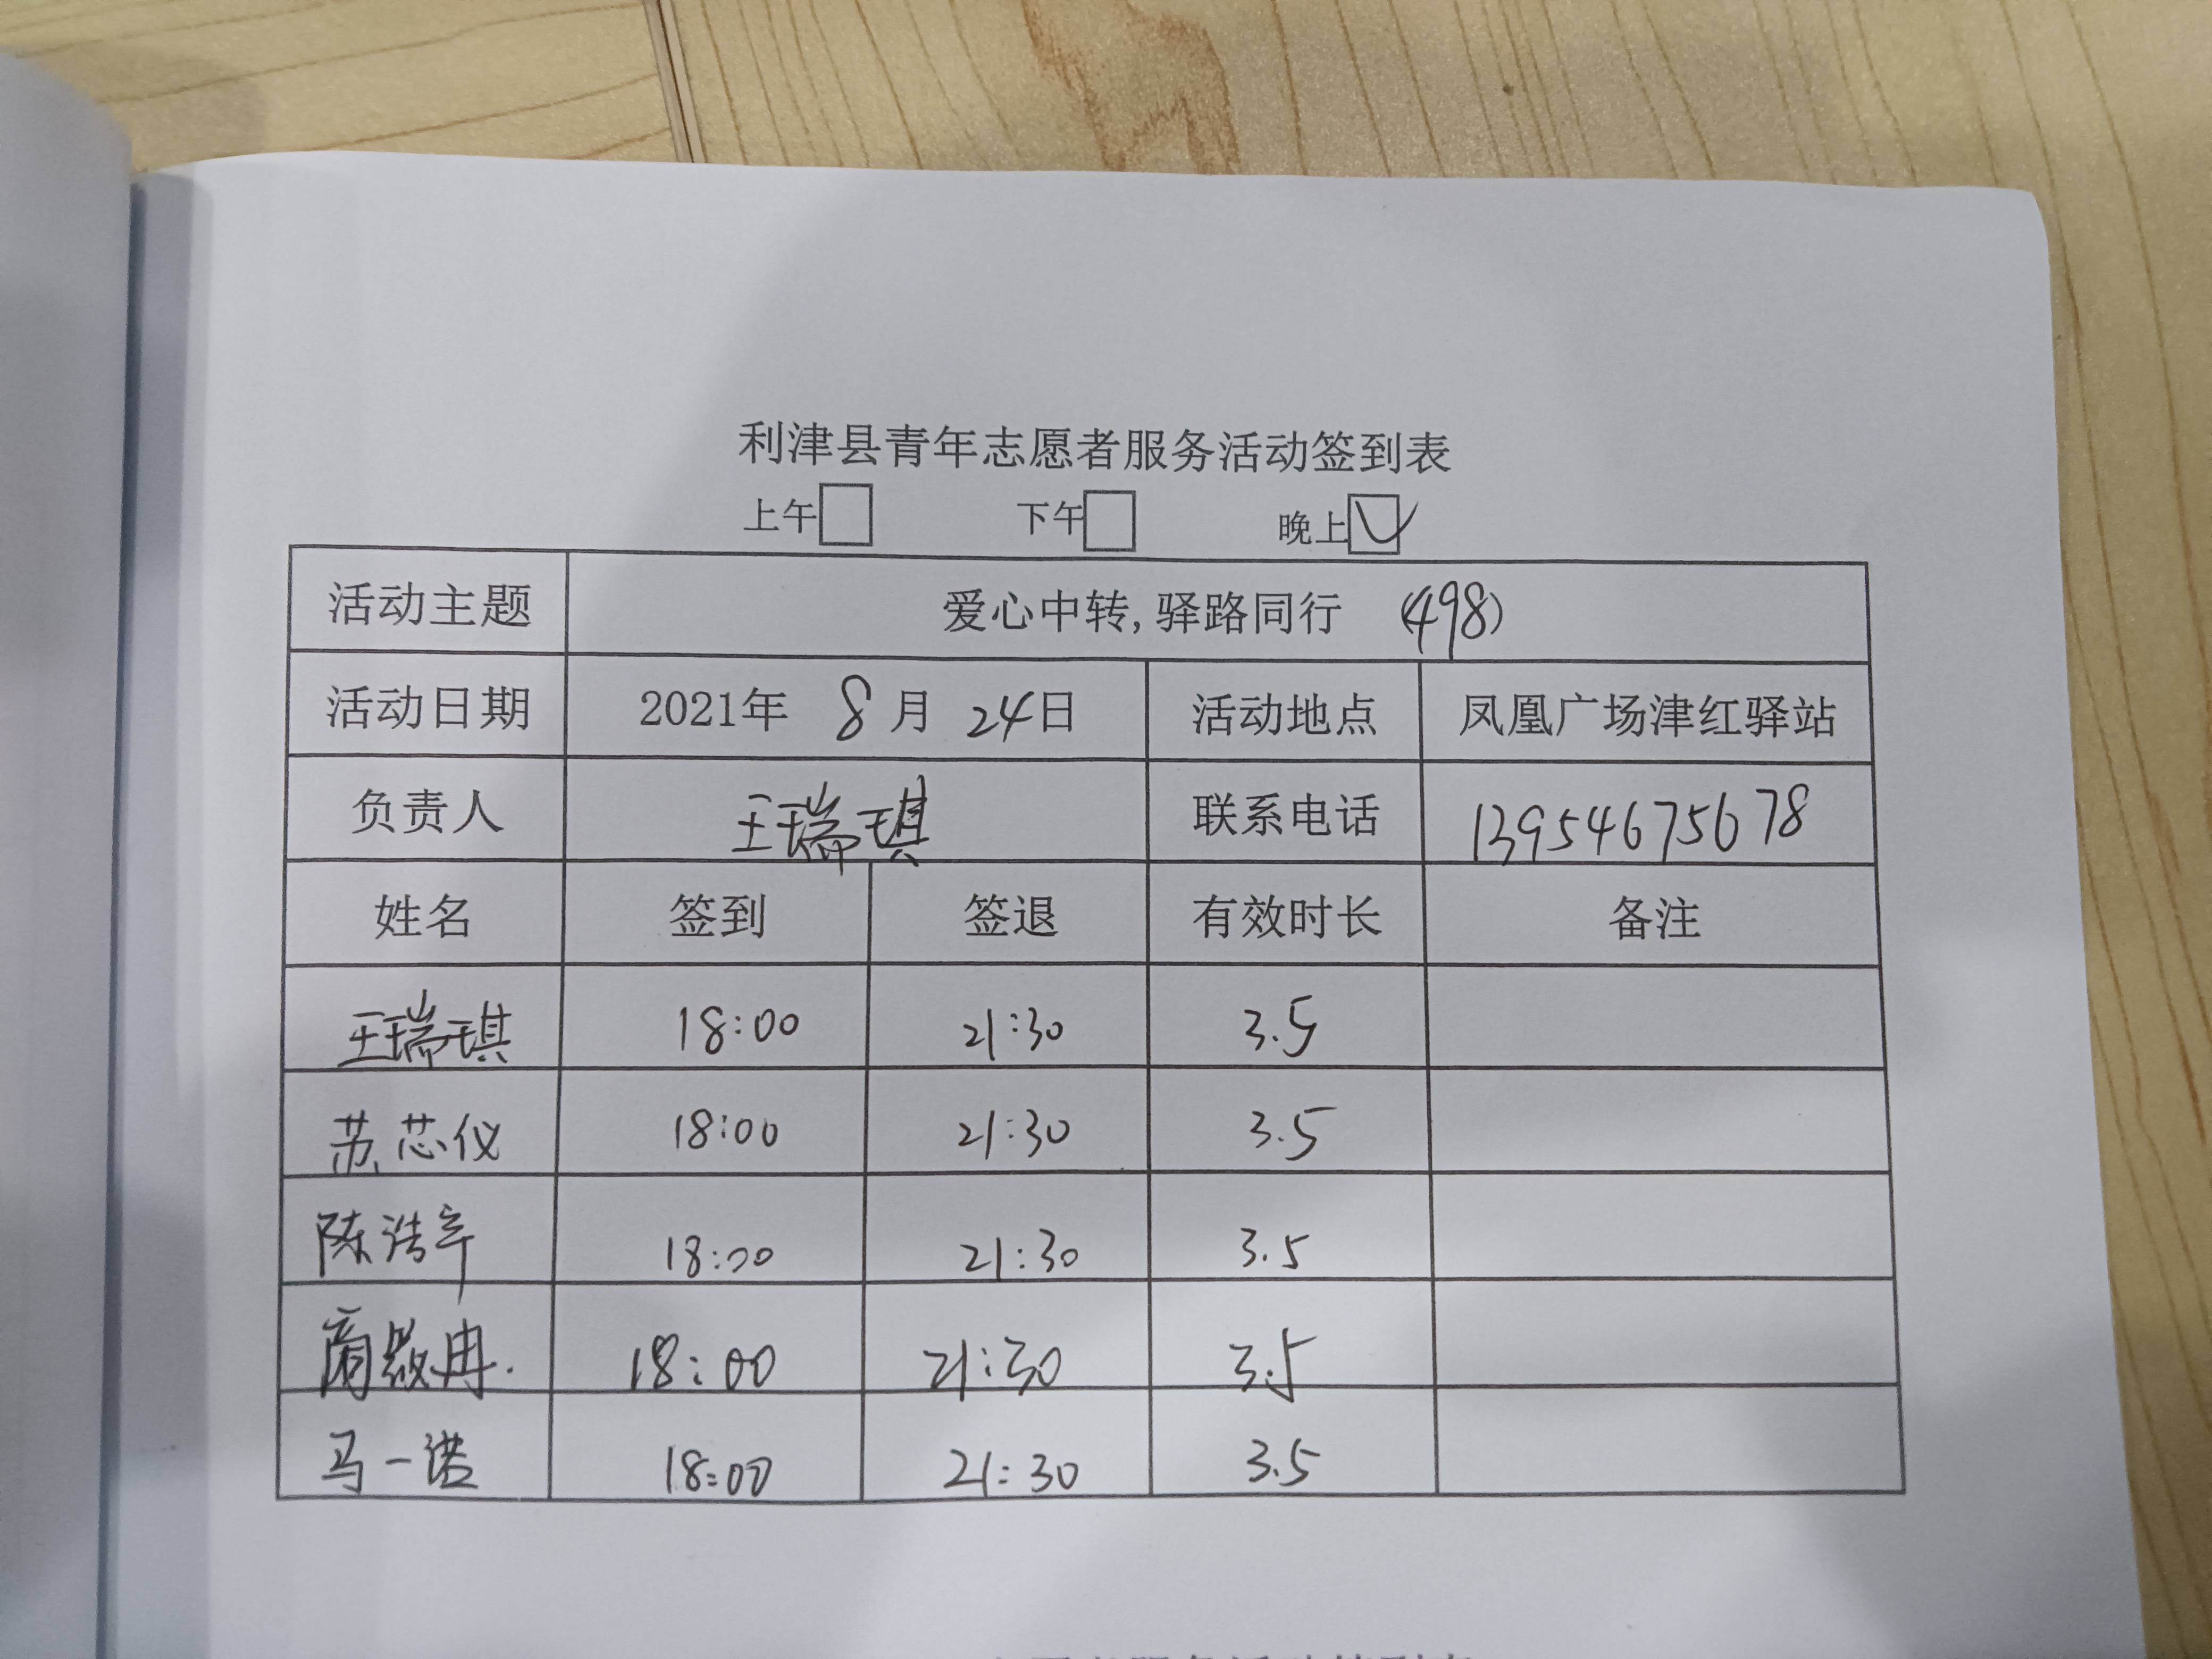 利津县青年志愿者服务活动签到表
上午 下午 晚上
活动主题 爱心中转,驿路同行 (498)
活动日期 2021年 8月 24日 活动地点 凤凰广场津红驿站
负责人 王瑞琪 联系电话 13954675678
姓名 签到 签退 有效时长 备注
王瑞琪 18:00 21:30 3.5
苏芯仪 18:00 21:30 3.5
陈浩辛 18:00 21:30 3.5
商敬冉 18:00 21:30 3.5
马一诺 18:00 21:30 3.5